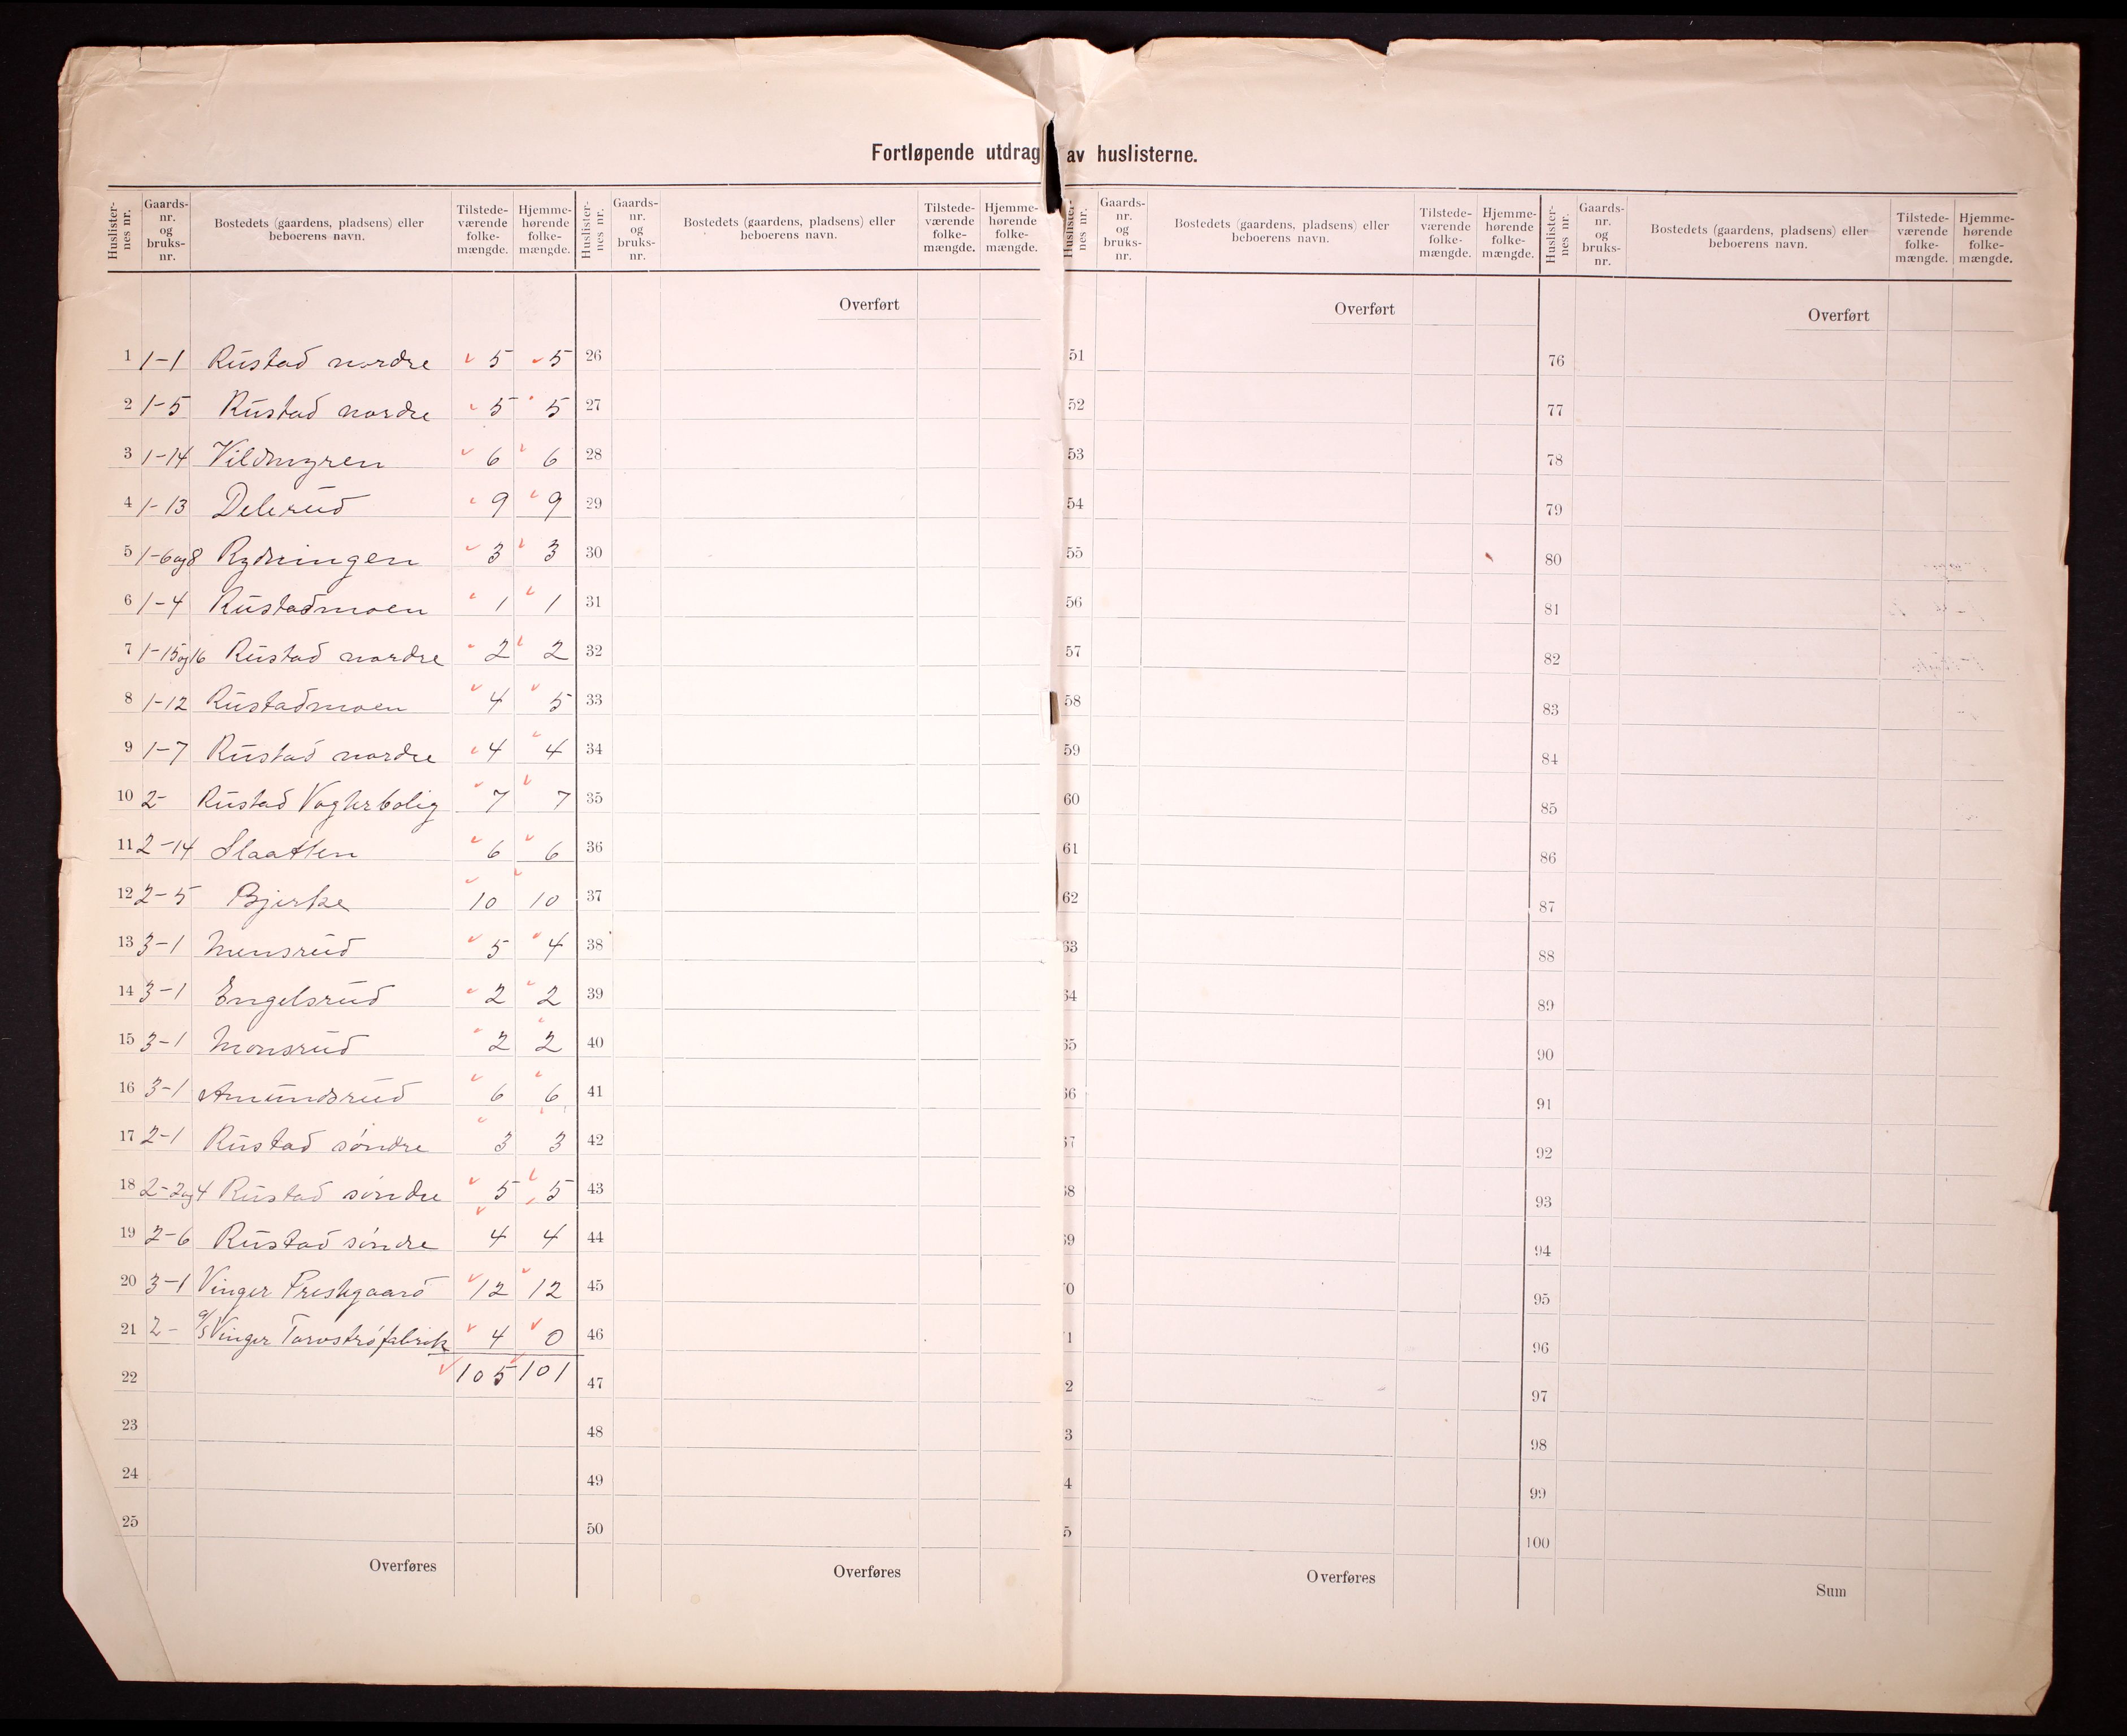 Fortløpende utdrag av huslisterne.
Huslisternes nr. Gaards-nr. og bruks-nr. Bostedets (gaardens, pladsens) eller beboerens navn. Tilstede-værende folke-mængde. Hjemme-hørende folke-mængde.
Huslisternes nr. Gaards-nr. og bruks-nr. Bostedets (gaardens, pladsens) eller beboerens navn. Tilstede-værende folke-mængde. Hjemme-hørende folke-mængde.
Huslisternes nr. Gaards-nr. og bruks-nr. Bostedets (gaardens, pladsens) eller beboerens navn. Tilstede-værende folke-mængde. Hjemme-hørende folke-mængde.
Huslisternes nr. Gaards-nr. og bruks-nr. Bostedets (gaardens, pladsens) eller beboerens navn. Tilstede-værende folke-mængde. Hjemme-hørende folke-mængde.
Overført Overført Overført
1 1-1 Rustad nordre 5 5 26 51 76
2 1-5 Rustad nordre 5 5 27 52 77
3 1-14 Vildmyren 6 6 28 53 78
4 1-13 Delerud 9 9 29 54 79
5 1-6og8 Rydningen 3 3 30 55 80
6 1-4 Rustadmoen 1 1 31 56 81
7 1-15og16 Rustad nordre 2 2 32 57 82
8 1-12 Rustadmoen 4 5 33 58 83
9 1-7 Rustad nordre 4 4 34 59 84
10 2- Rustad Vogterbolig 7 7 35 60 85
11 2-14 Slaatten 6 6 36 61 86
12 2-5 Bjerke 10 10 37 62 87
13 3-1 Monsrud 5 4 38 63 88
14 3-1 Engelsrud 2 2 39 64 89
15 3-1 Monsrud 2 2 40 65 90
16 3-1 Amundsrud 6 6 41 66 91
17 2-1 Rustad söndre 3 3 42 67 92
18 2-2og4 Rustad söndre 5 5 43 68 93
19 2-6 Rustad söndre 4 4 44 69 94
20 3-1 Vinger Prestgaard 12 12 45 70 95
21 2- a/s Vinger Torvströfabrik 4 0 46 71 96
22 105 101 47 72 97
23 48 73 98
24 49 74 99
25 50 75 100
Overføres Overføres Overføres Sum